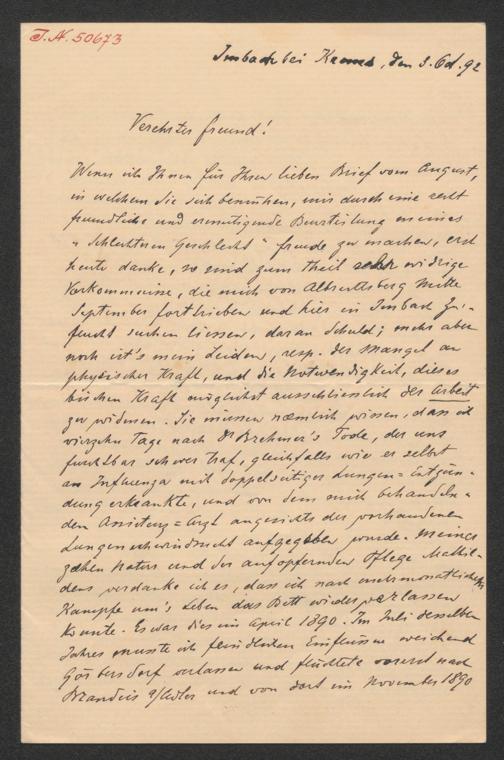 J.N. 50673
Imbach bei Krems, den 3. Oct. 92
Verehrter Freund!
Wenn ich Ihnen für Ihren lieben Brief vom August,
in welchem Sie sich bemühen, mir durch eine recht
freundliche und ermutigende Beurteilung meines
„Schlechteren Geschlecht“ Freude zu machen, erst
heute danke, so sind zum Theil sehr widrige
Vorkommnisse, die mich von Albrechtsberg Mitte
September fortrieben und hier in Imbach Zu-
flucht suchen liessen, daran Schuld; mehr aber
noch ist's mein Leiden, resp. der Mangel an
physischer Kraft, und die Notwendigkeit, dieses
bischen Kraft möglichst ausschliesslich der Arbeit
zu widmen. Sie müssen nämlich wissen, dass ich
vierzehn Tage nach Dr Brehmer's Tode, der uns
furchtbar schwer traf, gleichfalls wie er selbst
an Influenza mit doppelseitiger Lungen=Entzün-
dung erkrankte, und von dem mich behandeln-
den Assistenz=Arzt angesichts der vorhandenen
Lungenschwindsucht aufgegeben wurde. Meiner
zähen Natur und der aufopfernden Pflege Mathil-
dens verdanke ich es, dass ich nach mehrmonatlichem
Kampfe um's Leben das Bett wieder verlassen
konnte. Es war dies im April 1890. Im Juli desselben
Jahres musste ich feindlichen Einflüssen weichend
Görbersdorf verlassen und flüchtete vorerst nach
Brandeis a/Adler und von dort im November 1890